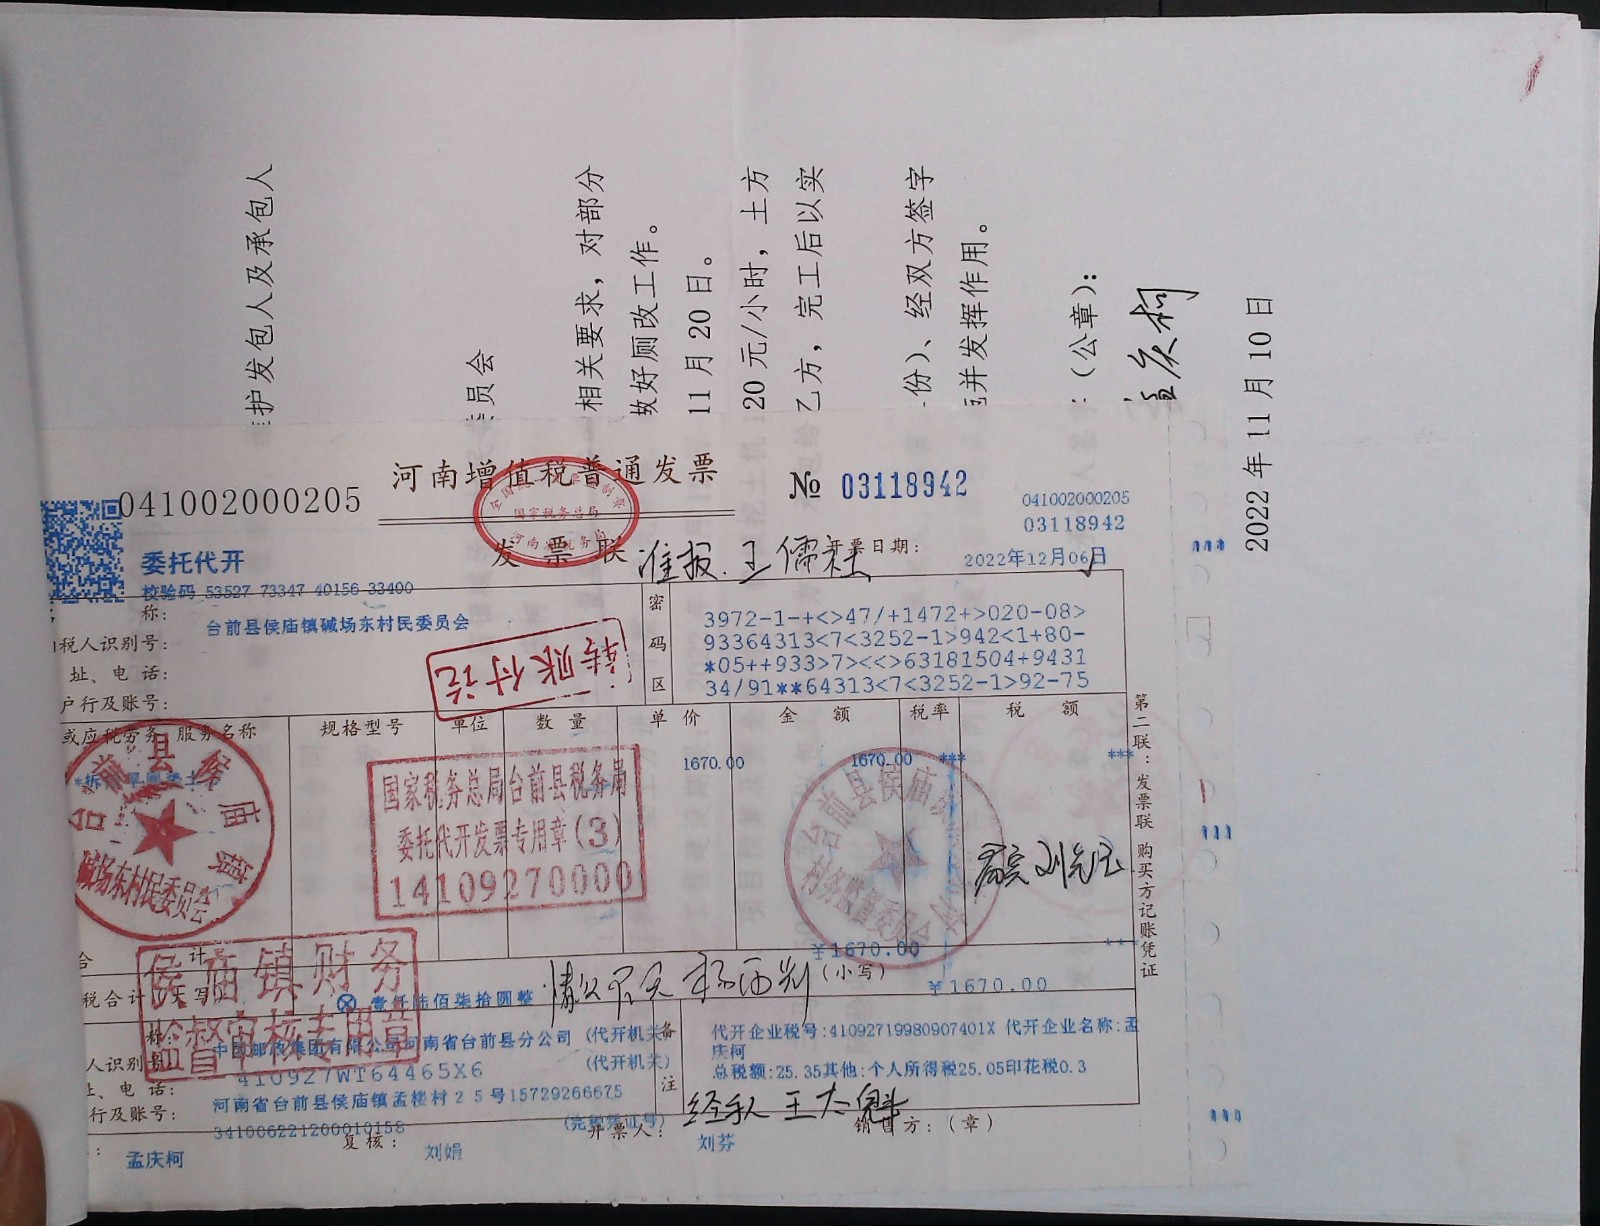 护发包人及承包人
员会
相关要求，对部分
做好厕改工作。
11月20日。
20元/小时，土方
乙方，完工后以实
份）、经双方签字
并发挥作用。
（公章）：
孟庆柯
2022年11月10日
041002000205
河南增值税普通发票
№ 03118942
041002000205
03118942
委托代开
发票联
国家税务总局
准报 王儒
开票日期：
2022年12月06日
校验码 53527 73347 40156 33400
称：
台前县侯庙镇碱场东村民委员会
税人识别号：
址、电话：
户行及账号：
转账付讫
密码区
3972-1-+<>47/+1472+>020-08>
93364313<7<3252-1>942<1+80-
*05++933>7><<>63181504+9431
34/91**64313<7<3252-1>92-75
或应税劳务、服务名称
规格型号
单位
数量
单价
金额
税率
税额
1670.00
1670.00
***
***
台前县侯庙镇
碱场东村民委员会
国家税务总局台前县税务局
委托代开发票专用章(3)
14109270000
台前县侯庙镇
村务监督委员会
刘
第二联：发票联 购买方记账凭证
合计
￥1670.00
***
侯庙镇财务
监督审核专用章
税合计（大写）
ⓧ 壹仟陆佰柒拾圆整
情况属实
（小写）
￥1670.00
称：
中国邮政集团有限公司河南省台前县分公司 (代开机关)
人识别号：
410927WT64465X6
(代开机关)
址、电话：
河南省台前县侯庙镇孟楼村25号15729266675
行及账号：
341006221200010158
(完税凭证号)
备注
代开企业税号:41092719980907401X 代开企业名称:孟
庆柯
总税额:25.35其他:个人所得税25.05印花税0.3
经手人 王太魁
孟庆柯
复核：
刘娟
开票人：
刘芬
销售方：（章）